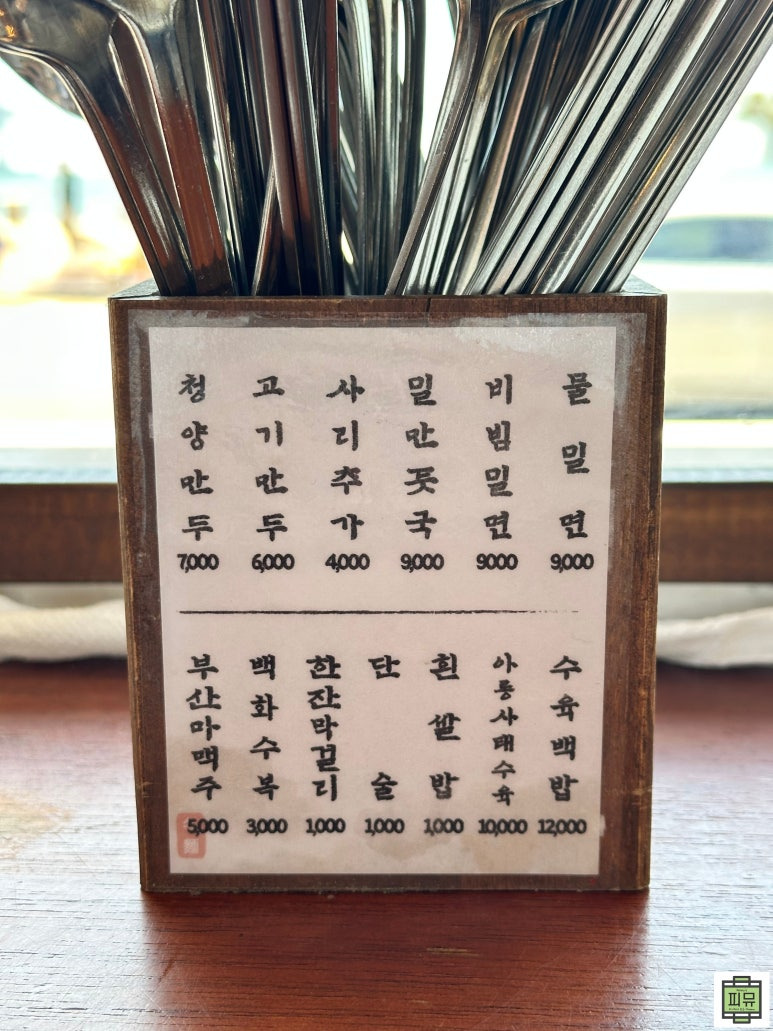 물밀면
9,000
비빔밀면
9000
밀만둣국
9,000
사리추가
4,000
고기만두
6,000
청양만두
7,000
수육백밥
12,000
아롱사태수육
10,000
흰쌀밥
1,000
단술
1,000
한잔막걸리
1,000
백화수복
3,000
부산마맥주
5,000
피뮤